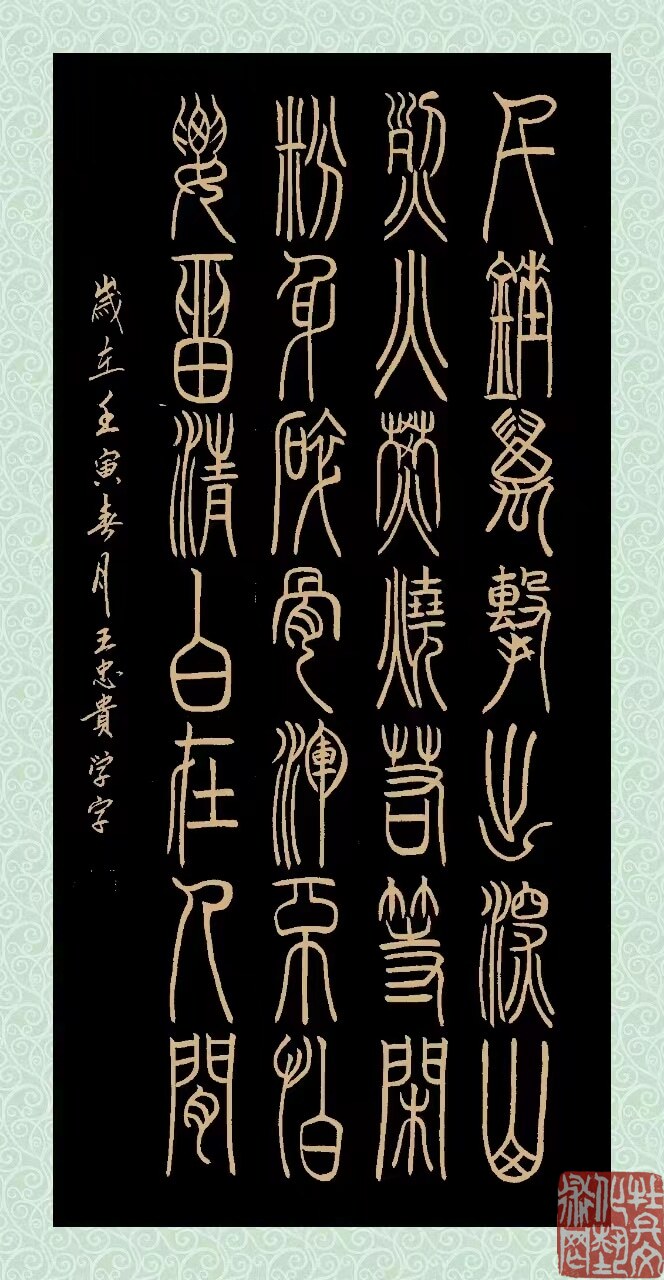 千錘萬擊出深山
烈火焚燒若等閑
粉身碎骨渾不怕
要留清白在人間
歲在壬寅春月王忠貴学字